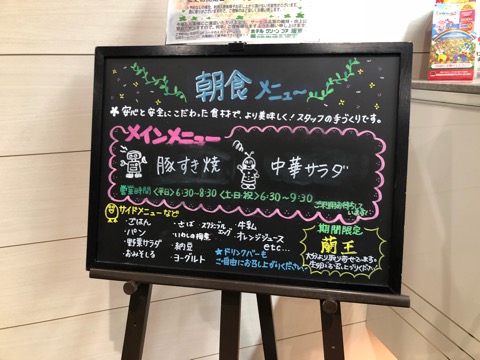 ホテル グリーンコア
朝食 メニュー
* 安心と安全にこだわった食材で、より美味しく!スタッフの手づくりです。
メインメニュー
豚すき焼
中華サラダ
営業時間 〈平日〉6:30〜8:30 〈土・日・祝〉6:30〜9:30
サイドメニューなど
・ごはん
・パン
・野菜サラダ
・おみそしる
・さば
・いわしの梅煮
・納豆
・ヨーグルト
スクランブルエッグ
牛乳
オレンジジュース
etc...
★ドリンクバーも
ご自由にお召し上がりください。
期間限定
蘭王
大分より取り寄せてます。